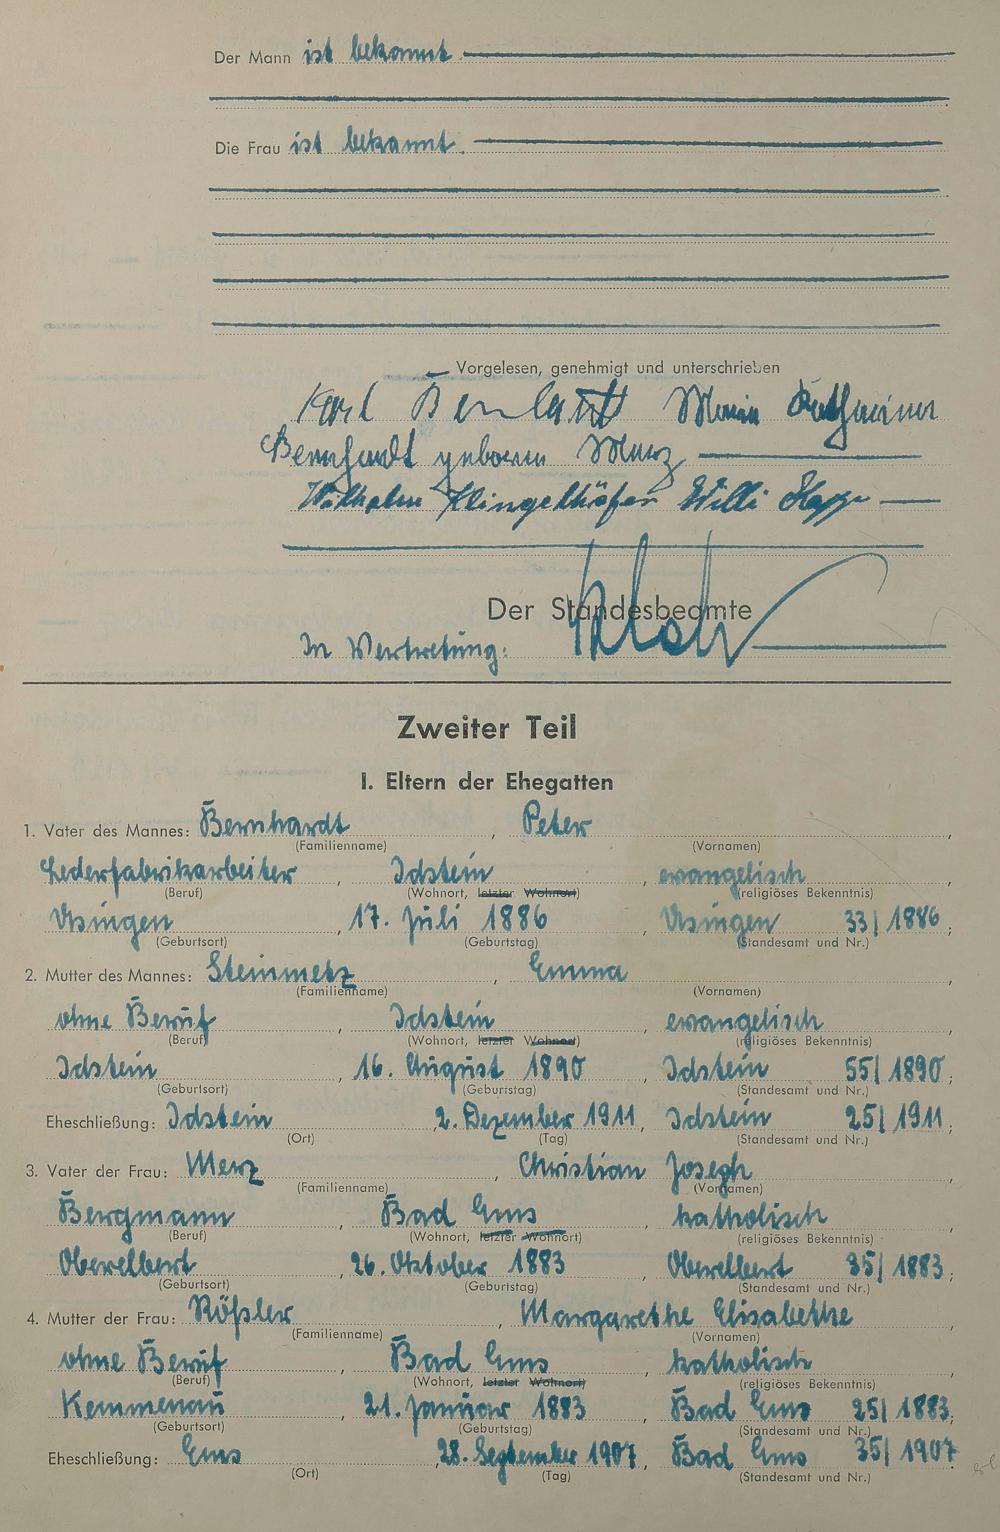 Der Mann ist bekannt.
Die Frau ist bekannt.
Vorgelesen, genehmigt und unterschrieben
Karl Bernhardt Maria Katharina
Bernhardt geboren Merz
Wilhelm Klingelhöfer Willi
Der Standesbeamte
In Vertretung:
Zweiter Teil
I. Eltern der Ehegatten
1. Vater des Mannes: Bernhardt, Peter,
(Familienname) (Vornamen)
Lederfabrikarbeiter, Idstein, evangelisch
(Beruf) (Wohnort, letzter Wohnort) (religiöses Bekenntnis)
Usingen, 17. Juli 1886, Usingen 33/1886;
(Geburtsort) (Geburtstag) (Standesamt und Nr.)
2. Mutter des Mannes: Steinmetz, Emma,
(Familienname) (Vornamen)
ohne Beruf, Idstein, evangelisch,
(Beruf) (Wohnort, letzter Wohnort) (religiöses Bekenntnis)
Idstein, 16. August 1890, Idstein 55/1890;
(Geburtsort) (Geburtstag) (Standesamt und Nr.)
Eheschließung: Idstein, 2. Dezember 1911, Idstein 25/1911;
(Ort) (Tag) (Standesamt und Nr.)
3. Vater der Frau: Merz, Christian Joseph,
(Familienname) (Vornamen)
Bergmann, Bad Ems, katholisch,
(Beruf) (Wohnort, letzter Wohnort) (religiöses Bekenntnis)
Oberelbert, 26. Oktober 1883, Oberelbert 35/1883;
(Geburtsort) (Geburtstag) (Standesamt und Nr.)
4. Mutter der Frau: Rößler, Margarethe Elisabethe,
(Familienname) (Vornamen)
ohne Beruf, Bad Ems, katholisch,
(Beruf) (Wohnort, letzter Wohnort) (religiöses Bekenntnis)
Kemmenau, 21. Januar 1883, Bad Ems 25/1883;
(Geburtsort) (Geburtstag) (Standesamt und Nr.)
Eheschließung: Ems, 28. September 1907, Bad Ems 35/1907.
(Ort) (Tag) (Standesamt und Nr.)